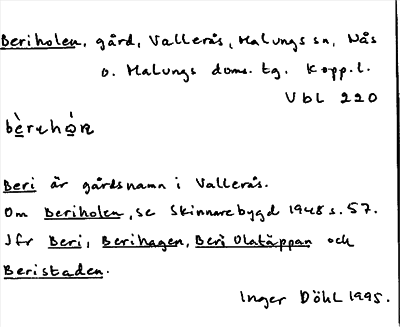 Beriholen, gård, Vallerås, Malungs sn, Nås
o. Malungs doms. tg. Kopp. l.
Vbl 220
Beri är gårdsnamn i Vallerås.
Om Beriholen, se Skinnarebygd 1948 s. 57.
Jfr Beri, Berihagen, Beri Olatäppan och
Beristaden.
Inger Döhl 1995.